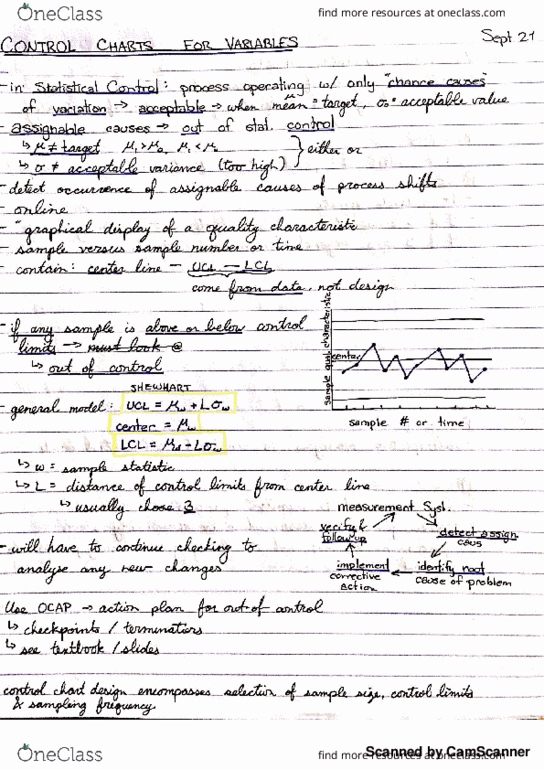 OneClass
find more resources at oneclass.com
Sept 21
CONTROL CHARTS FOR VARIABLES
- in Statistical Control: process operating w/ only "chance causes"
of variation → acceptable → when mean = target, σ = acceptable value
- assignable causes → out of stat. control
↳ μ ≠ target μ₁ > μ₀, μ₁ < μ₀
↳ σ ≠ acceptable variance (too high)
} either or
- detect occurrence of assignable causes of process shifts
- online
- "graphical display of a quality characteristic
- sample versus sample number or time
- contain: center line - UCL - LCL
come from data, not design
- if any sample is above or below control
limits → must look @
↳ out of control
sample qual characteristic
center
sample # or time
SHEWHART
- general model: UCL = μw + Lσw
center = μw
LCL = μw - Lσw
↳ w = sample statistic
↳ L = distance of control limits from center line
↳ usually chose 3
- will have to continue checking to
analyse any new changes
measurement Syst.
detect assign
caus
identify root
cause of problem
implement
corrective
action
verify &
follow up
Use OCAP → action plan for out of control
↳ checkpoints / terminators
↳ see textbook / slides
control chart design encompasses selection of sample size, control limits
& sampling frequency
OneClass
find more resources at oneclass.com
Scanned by CamScanner